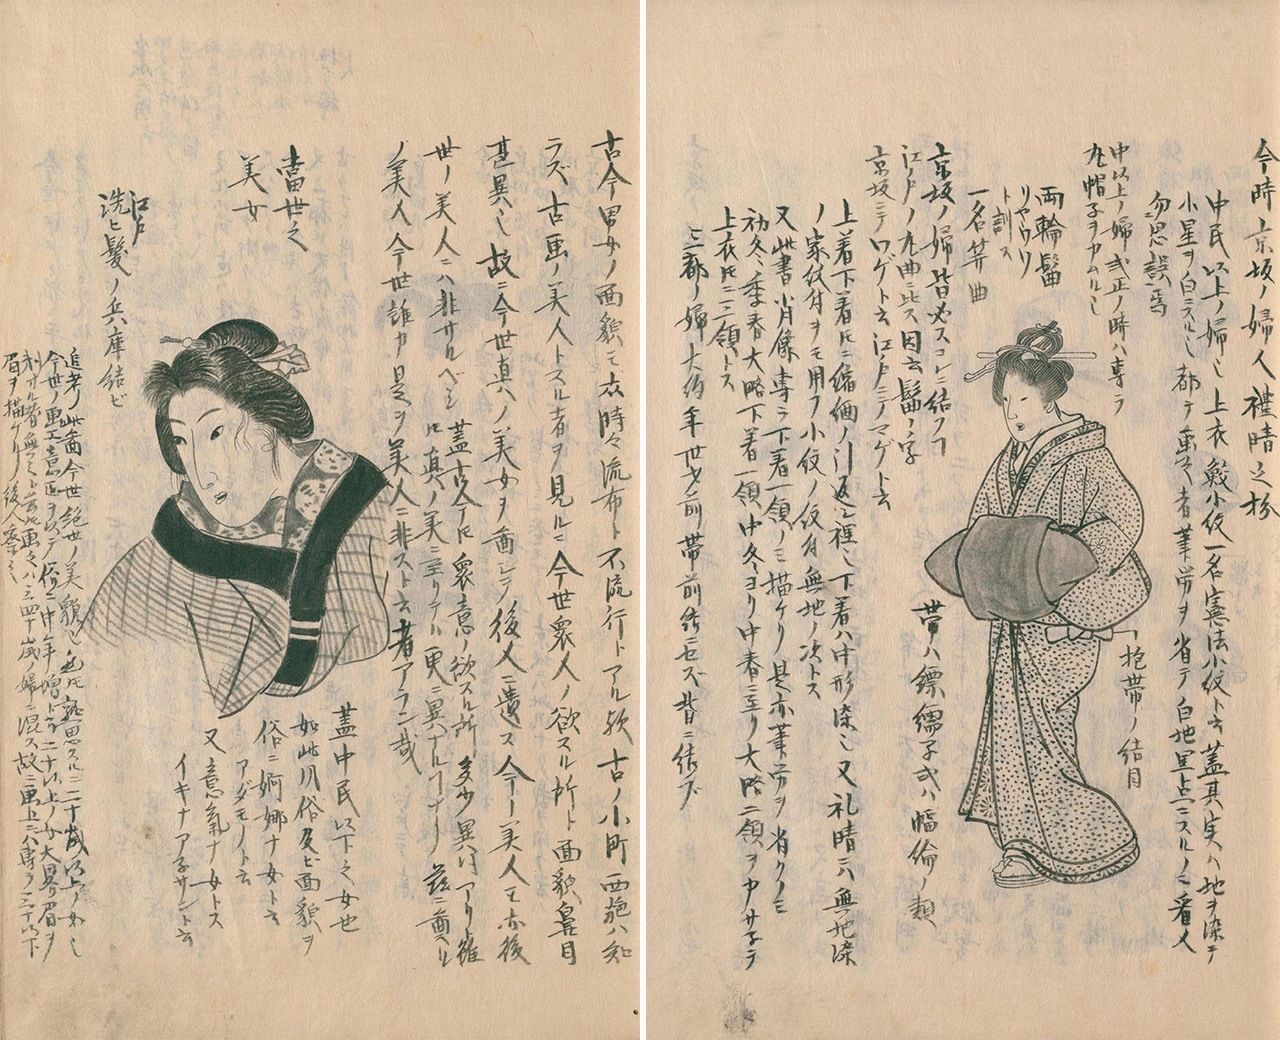 今時京坂ノ婦人禮晴之扮
中民以上ノ婦也上衣鮫小紋一名憲法小紋ト云蓋其実ハ地ヲ染テ
小星ヲ白ニスル也都テ画ク者筆労ヲ省テ白地黒点ニスルノミ看人
勿思誤焉
中以上ノ婦式正ノ時ハ専ラ
丸帽子ヲカムル也
両輪髷
リヤウワ
ト訓ス
一名笄曲
京坂ノ婦皆必ズコレニ結フ
江戸ノ丸曲ニ比ス因云髷ノ字
京坂ニテワゲト云江戸ニテマゲト云
上着下着トモニ縮緬ノ引返シ裡也下着ハ中形染也又礼晴ニハ無地染
ノ家紋付ヲモ用フ小紋ノ紋付無地ノ次トス
又此書小肖像専ラ下着一領ノミ描ケリ是亦筆労ヲ省クノミ
初冬季春大略下着一領中冬ヨリ中春ニ至リ大略二領ヲカサネテ
上衣トモニ三領トス
三都ノ婦大約年廿才前帯前結ニセズ背ニ結ブ
帯ハ縹繻子或ハ幅倫ノ類
抱帯ノ結目
古今男女ノ面貌モ亦時々流布ト不流行トアル歟古ノ小町西施ハ知
ラズ古画ノ美人トスル者ヲ見ルニ今世衆人ノ欲スル所ト面貌鼻目
甚異也故ニ今世真ノ美女ヲ画シテ後人ニ遺ス今ノ美人モ亦後
世ノ美人ニハ非サルベシ蓋古今トモ衆意ノ欲スル所多少異同アリト雖
トモ真ノ美ニ至リテハ更ニ異ナルコトナシ茲ニ画ク
ノ美人今世誰カ是ヲ美人ニ非スト云者アラン哉
當世之
美女
江戸
洗ヒ髪ノ兵庫結ビ
蓋中民以下之女也
如此風俗及ビ面貌ヲ
俗ニ婀娜ナ女ト云
アダモノト云
又意氣ナ女トス
イキナアネサント云
追考此画今世絶世ノ美貌也
今世ノ画工意匠ヲ以テ俗ニ中年増ト云二十以上ノ女大畧眉ヲ
剃サル者無シト云トモ画クハ三四十歳ノ婦ニ混ス故ニ画上ニハ専ラ三十以下
眉ヲ描ケリ後人察之